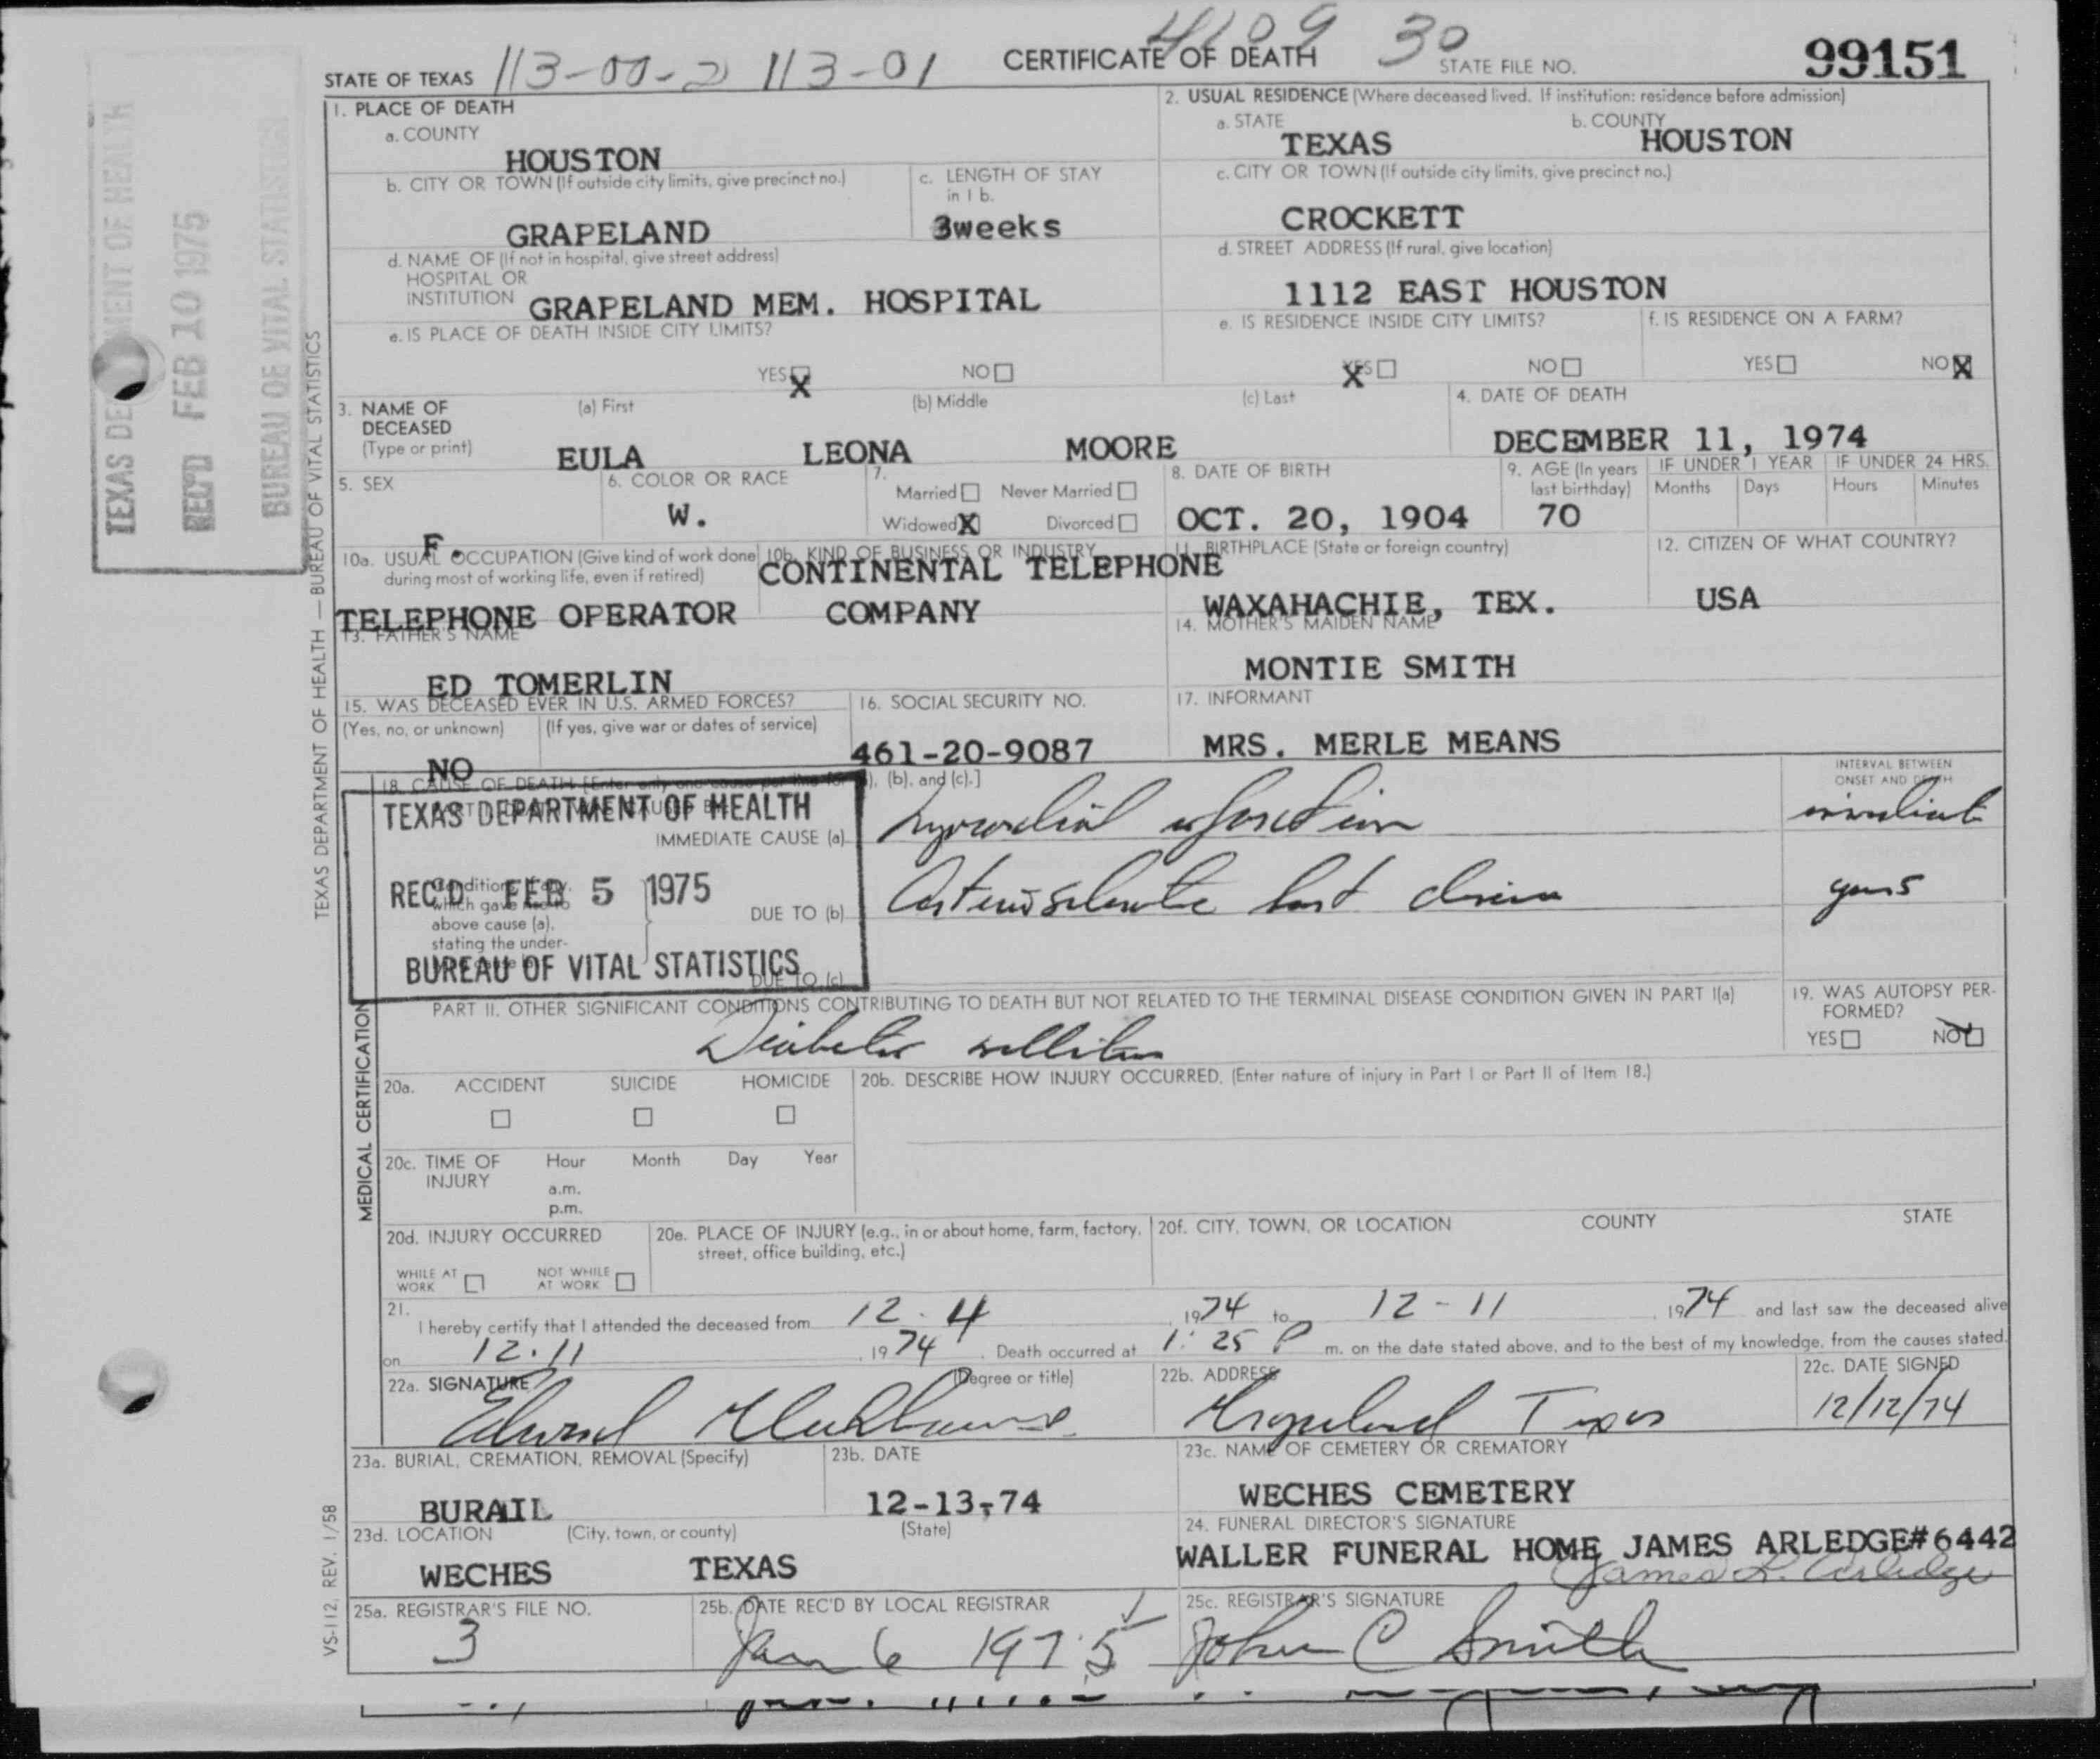 4109 30
STATE OF TEXAS 113-00-2 113-01 CERTIFICATE OF DEATH STATE FILE NO. 99151
1. PLACE OF DEATH
a. COUNTY
HOUSTON
2. USUAL RESIDENCE (Where deceased lived. If institution: residence before admission)
a. STATE b. COUNTY
TEXAS HOUSTON
b. CITY OR TOWN (If outside city limits, give precinct no.)
GRAPELAND
c. LENGTH OF STAY
in 1 b.
3weeks
c. CITY OR TOWN (If outside city limits, give precinct no.)
CROCKETT
d. NAME OF (If not in hospital, give street address)
HOSPITAL OR
INSTITUTION GRAPELAND MEM. HOSPITAL
d. STREET ADDRESS (If rural, give location)
1112 EAST HOUSTON
e. IS PLACE OF DEATH INSIDE CITY LIMITS?
YES X NO
e. IS RESIDENCE INSIDE CITY LIMITS?
X YES NO
f. IS RESIDENCE ON A FARM?
YES NO X
3. NAME OF
DECEASED
(Type or print)
(a) First (b) Middle (c) Last
EULA LEONA MOORE
4. DATE OF DEATH
DECEMBER 11, 1974
5. SEX
F.
6. COLOR OR RACE
W.
7.
Married Never Married
Widowed X Divorced
8. DATE OF BIRTH
OCT. 20, 1904
9. AGE (In years
last birthday)
70
IF UNDER 1 YEAR IF UNDER 24 HRS.
Months Days Hours Minutes
10a. USUAL OCCUPATION (Give kind of work done
during most of working life, even if retired)
TELEPHONE OPERATOR
10b. KIND OF BUSINESS OR INDUSTRY
CONTINENTAL TELEPHONE
COMPANY
11. BIRTHPLACE (State or foreign country)
WAXAHACHIE, TEX.
12. CITIZEN OF WHAT COUNTRY?
USA
13. FATHER'S NAME
ED TOMERLIN
14. MOTHER'S MAIDEN NAME
MONTIE SMITH
15. WAS DECEASED EVER IN U.S. ARMED FORCES?
(Yes, no, or unknown) (If yes, give war or dates of service)
NO
16. SOCIAL SECURITY NO.
461-20-9087
17. INFORMANT
MRS. MERLE MEANS
18. CAUSE OF DEATH [Enter only one cause per line for (a), (b), and (c).]
INTERVAL BETWEEN
ONSET AND DEATH
TEXAS DEPARTMENT OF HEALTH
REC'D FEB 5 1975
BUREAU OF VITAL STATISTICS
IMMEDIATE CAUSE (a) Myocardial infarction immediate
Conditions if any,
which gave rise to
above cause (a),
stating the under-
DUE TO (b) Arteriosclerotic heart disease years
DUE TO (c)
PART II. OTHER SIGNIFICANT CONDITIONS CONTRIBUTING TO DEATH BUT NOT RELATED TO THE TERMINAL DISEASE CONDITION GIVEN IN PART I(a)
Diabetes mellitus
19. WAS AUTOPSY PER-
FORMED?
YES NO
20a. ACCIDENT SUICIDE HOMICIDE
20b. DESCRIBE HOW INJURY OCCURRED. (Enter nature of injury in Part I or Part II of Item 18.)
20c. TIME OF
INJURY
Hour Month Day Year
a.m.
p.m.
20d. INJURY OCCURRED
WHILE AT
WORK
NOT WHILE
AT WORK
20e. PLACE OF INJURY (e.g., in or about home, farm, factory,
street, office building, etc.)
20f. CITY, TOWN, OR LOCATION COUNTY STATE
21.
I hereby certify that I attended the deceased from 12-4 1974 to 12-11 1974 and last saw the deceased alive
on 12.11 1974. Death occurred at 1:25 P m. on the date stated above, and to the best of my knowledge, from the causes stated.
22a. SIGNATURE (Degree or title)
Edward
22b. ADDRESS
Grapeland Texas
22c. DATE SIGNED
12/12/74
23a. BURIAL, CREMATION, REMOVAL (Specify)
BURAIL
23b. DATE
12-13-74
23c. NAME OF CEMETERY OR CREMATORY
WECHES CEMETERY
23d. LOCATION (City, town, or county) (State)
WECHES TEXAS
24. FUNERAL DIRECTOR'S SIGNATURE
WALLER FUNERAL HOME JAMES ARLEDGE#6442
James L. Arledge
25a. REGISTRAR'S FILE NO.
3
25b. DATE REC'D BY LOCAL REGISTRAR
Jan 6 1975
25c. REGISTRAR'S SIGNATURE
John C Smith
TEXAS DEPARTMENT OF HEALTH — BUREAU OF VITAL STATISTICS
MEDICAL CERTIFICATION
VS-112, REV. 1/58
TEXAS DEPARTMENT OF HEALTH
REC'D FEB 10 1975
BUREAU OF VITAL STATISTICS